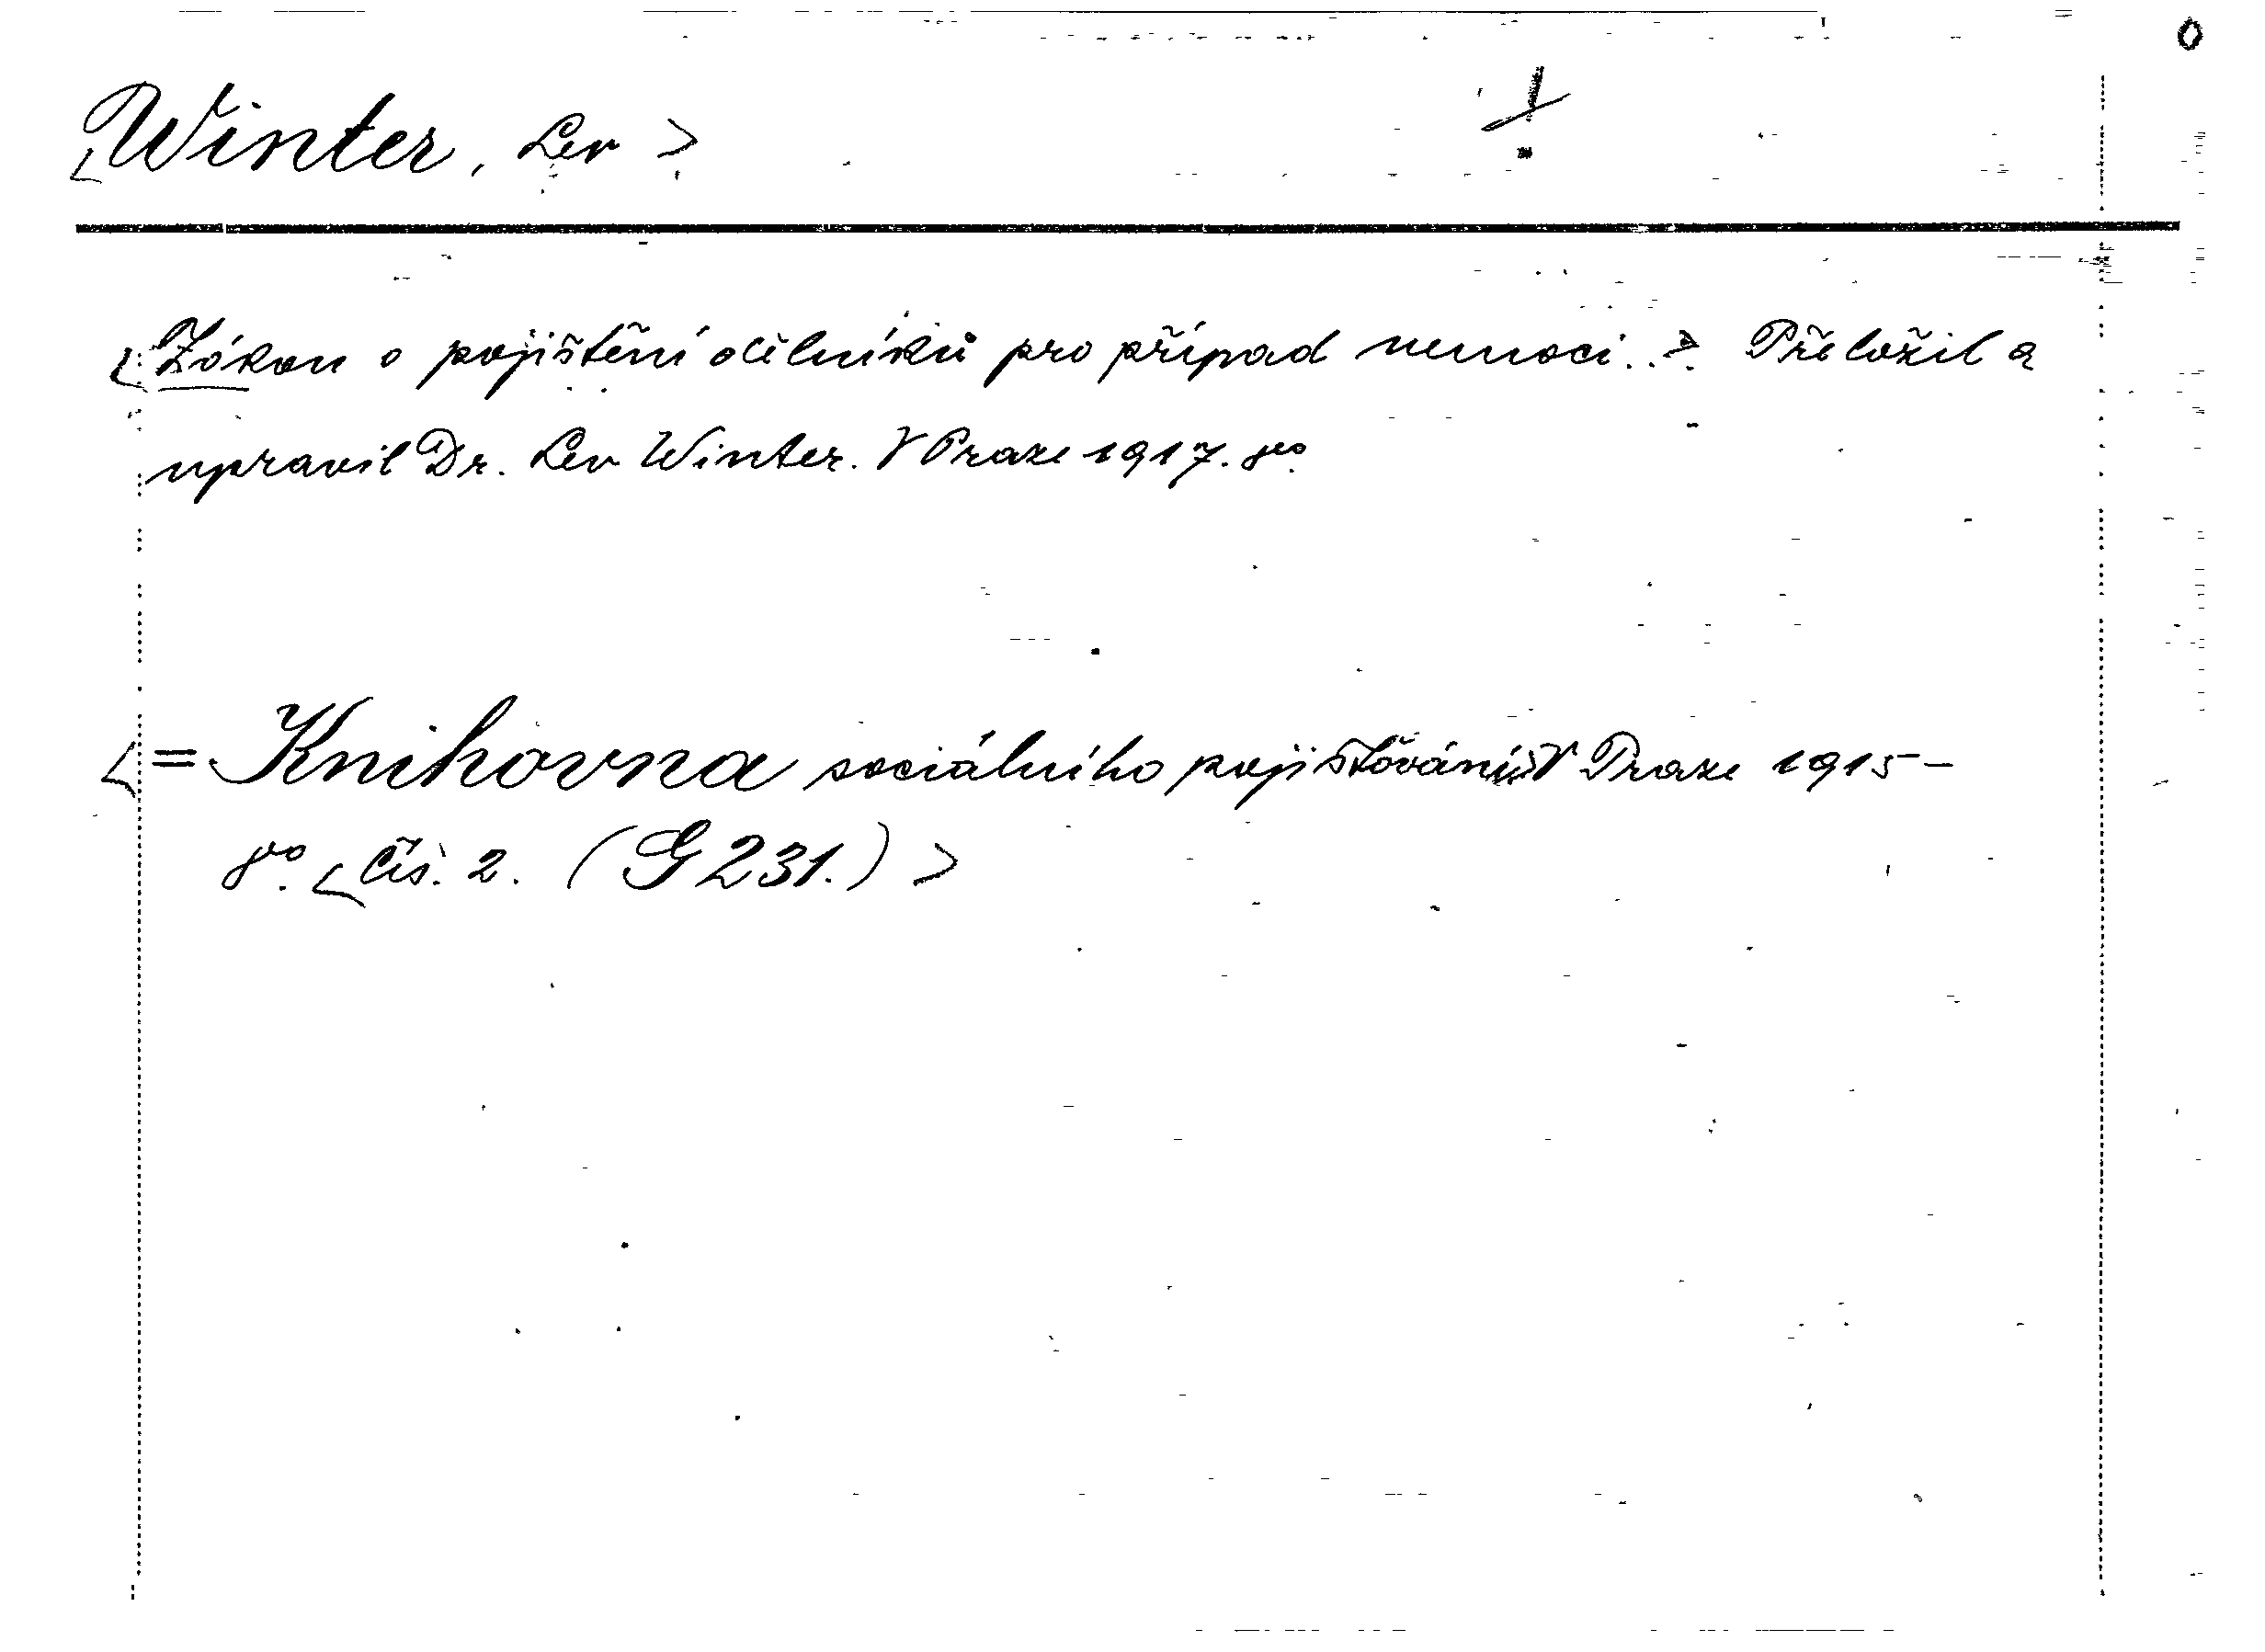 <Winter, Lev>
<Zákon o pojištění dělníků pro případ nemoci..> Přeložil a
upravil Dr. Lev Winter. V Praze 1917. 8º.
<= Knihovna sociálního pojišťování> V Praze 1915-
8º. <Čís. 2. (G 231.)>